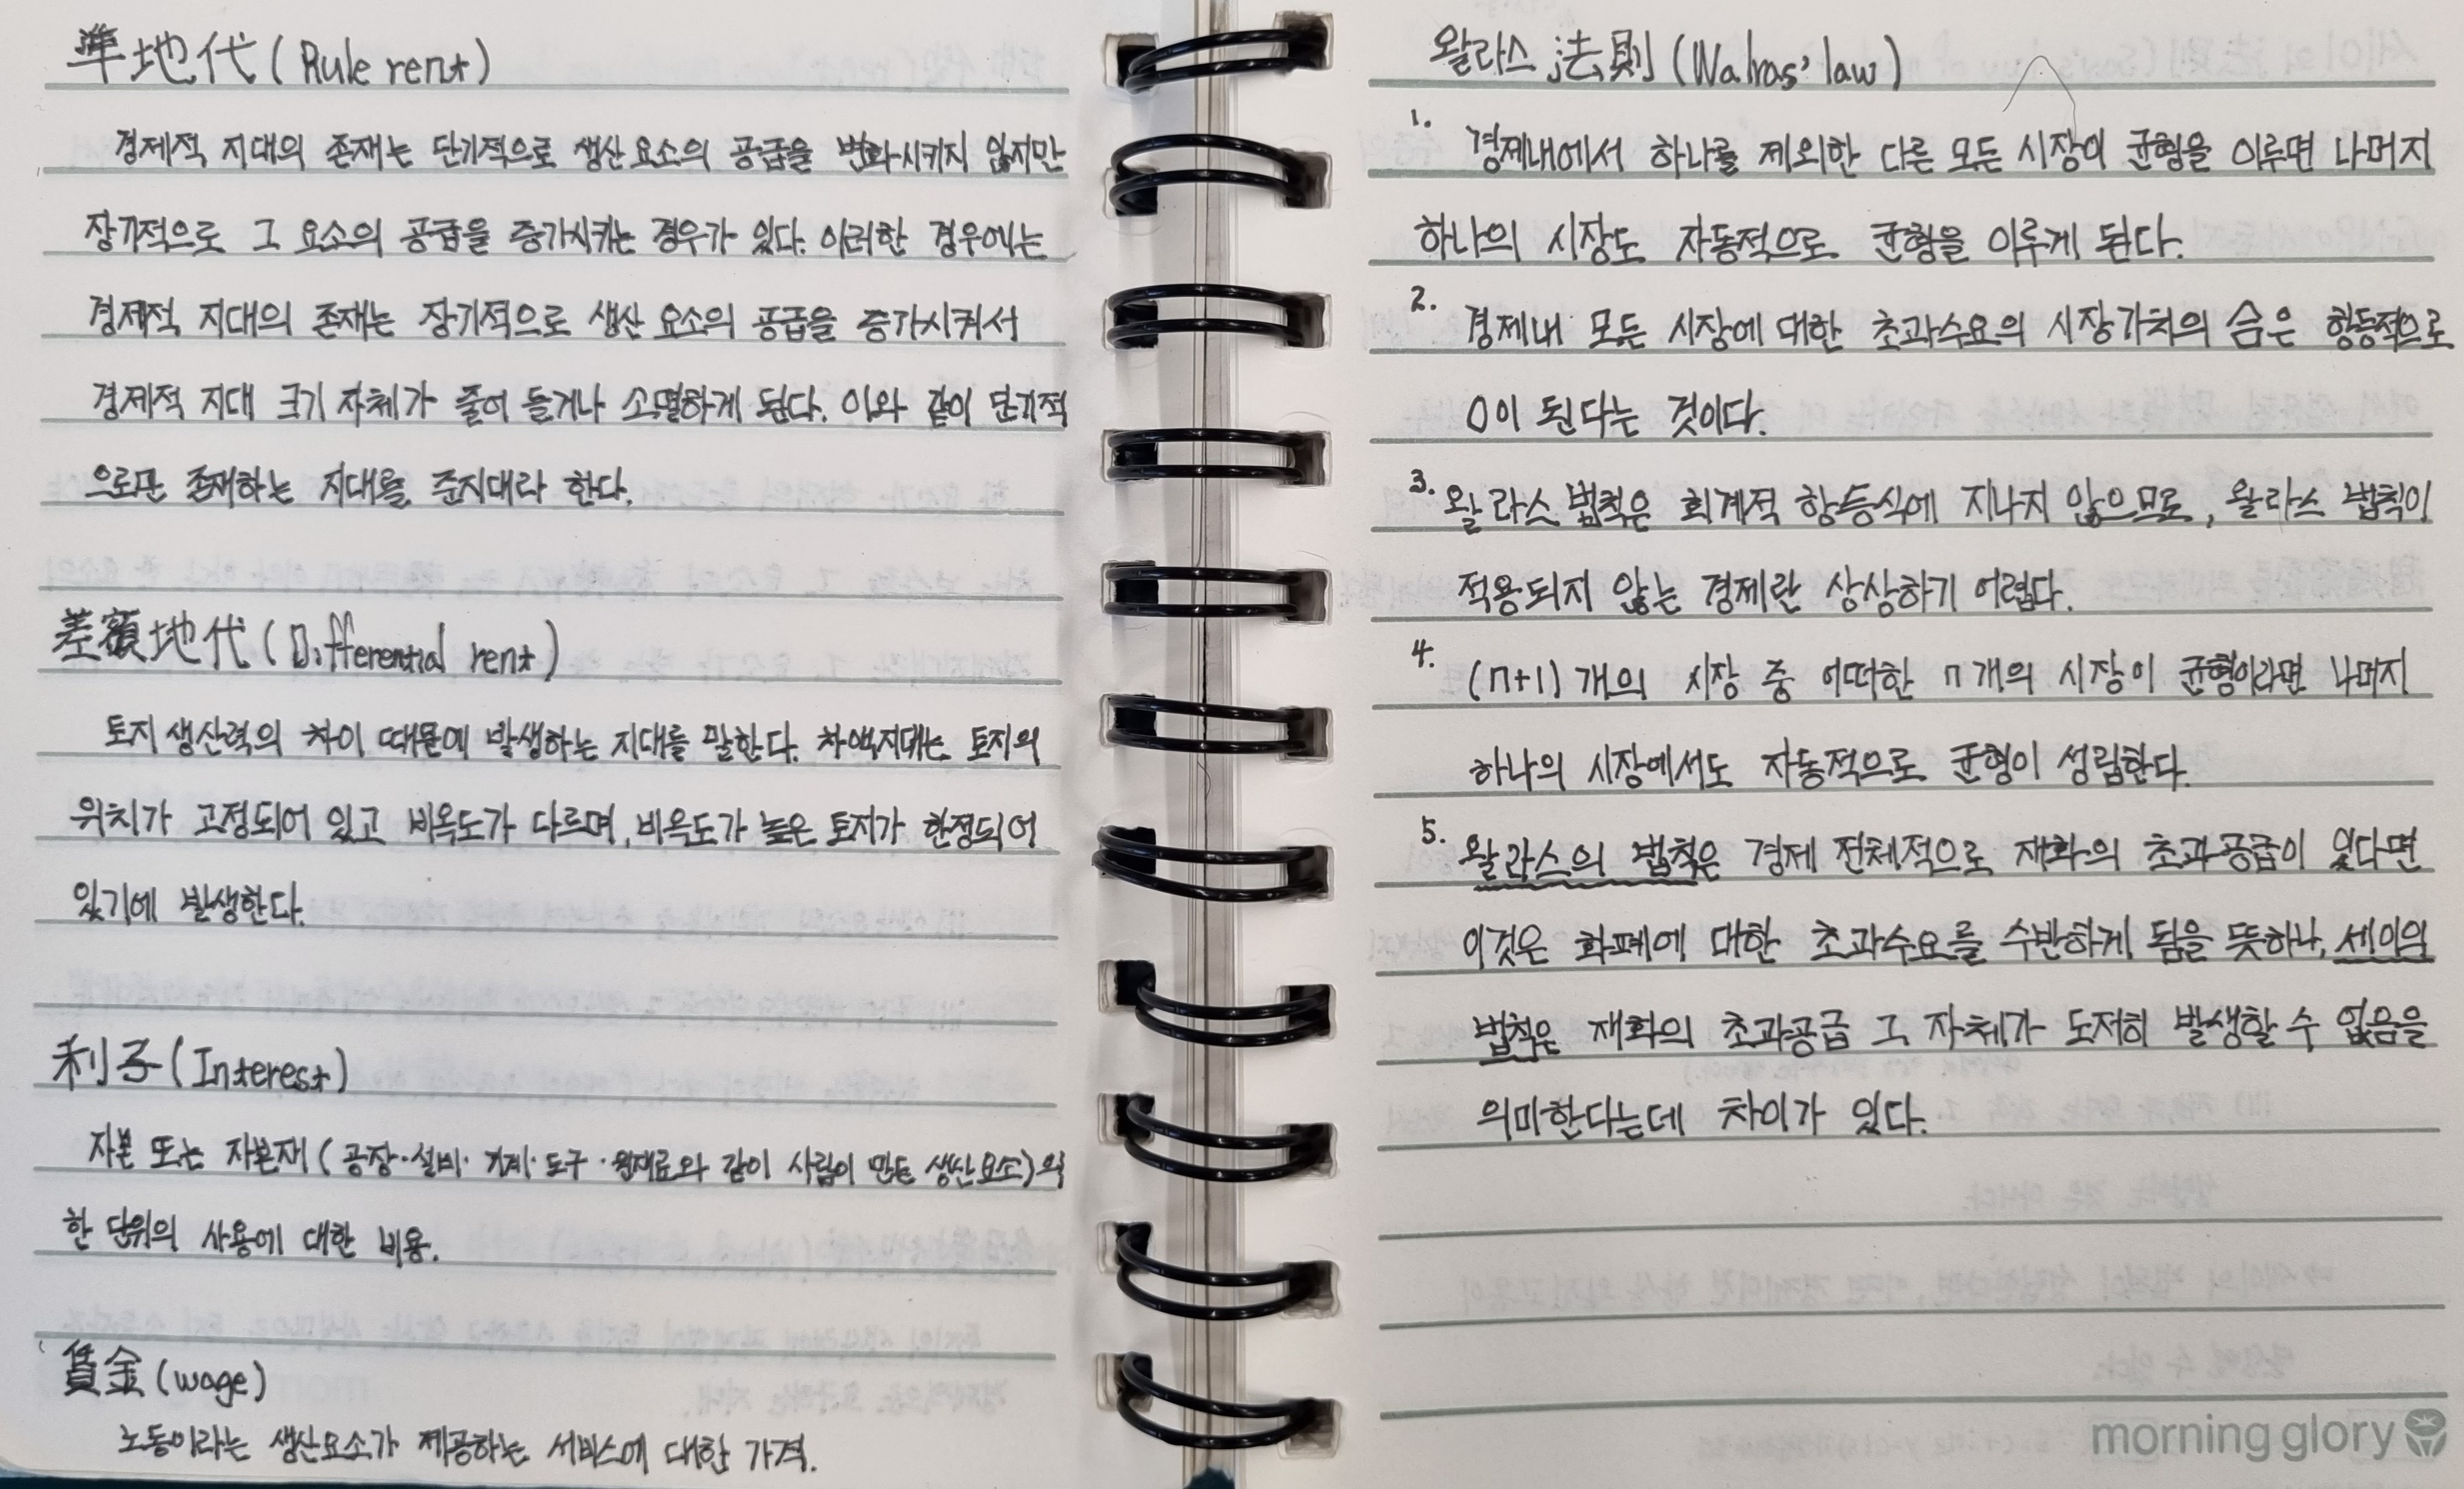 準地代(Rule rent)
경제적 지대의 존재는 단기적으로 생산요소의 공급을 변화시키지 않지만
장기적으로 그 요소의 공급을 증가시키는 경우가 있다. 이러한 경우에는
경제적 지대의 존재는 장기적으로 생산 요소의 공급을 증가시켜서
경제적 지대 크기 자체가 줄어 들거나 소멸하게 된다. 이와 같이 단기적
으로만 존재하는 지대를 준지대라 한다.
差額地代(Differential rent)
토지 생산력의 차이 때문에 발생하는 지대를 말한다. 차액지대는 토지의
위치가 고정되어 있고 비옥도가 다르며, 비옥도가 높은 토지가 한정되어
있기에 발생한다.
利子(Interest)
자본 또는 자본재(공장·설비·기계·도구·원재료와 같이 사람이 만든 생산요소)의
한 단위의 사용에 대한 비용.
賃金(wage)
노동이라는 생산요소가 제공하는 서비스에 대한 가격.
왈라스 法則(Walras' law)
1. 경제내에서 하나를 제외한 다른 모든 시장이 균형을 이루면 나머지
하나의 시장도 자동적으로 균형을 이루게 된다.
2. 경제내 모든 시장에 대한 초과수요의 시장가치의 합은 항등적으로
0이 된다는 것이다.
3. 왈라스 법칙은 회계적 항등식에 지나지 않으므로, 왈라스 법칙이
적용되지 않는 경제란 상상하기 어렵다.
4. (n+1)개의 시장 중 어떠한 n개의 시장이 균형이라면 나머지
하나의 시장에서도 자동적으로 균형이 성립한다.
5. 왈라스의 법칙은 경제 전체적으로 재화의 초과공급이 있다면
이것은 화폐에 대한 초과수요를 수반하게 됨을 뜻하나, 세이의
법칙은 재화의 초과공급 그 자체가 도저히 발생할 수 없음을
의미한다는데 차이가 있다.
morning glory